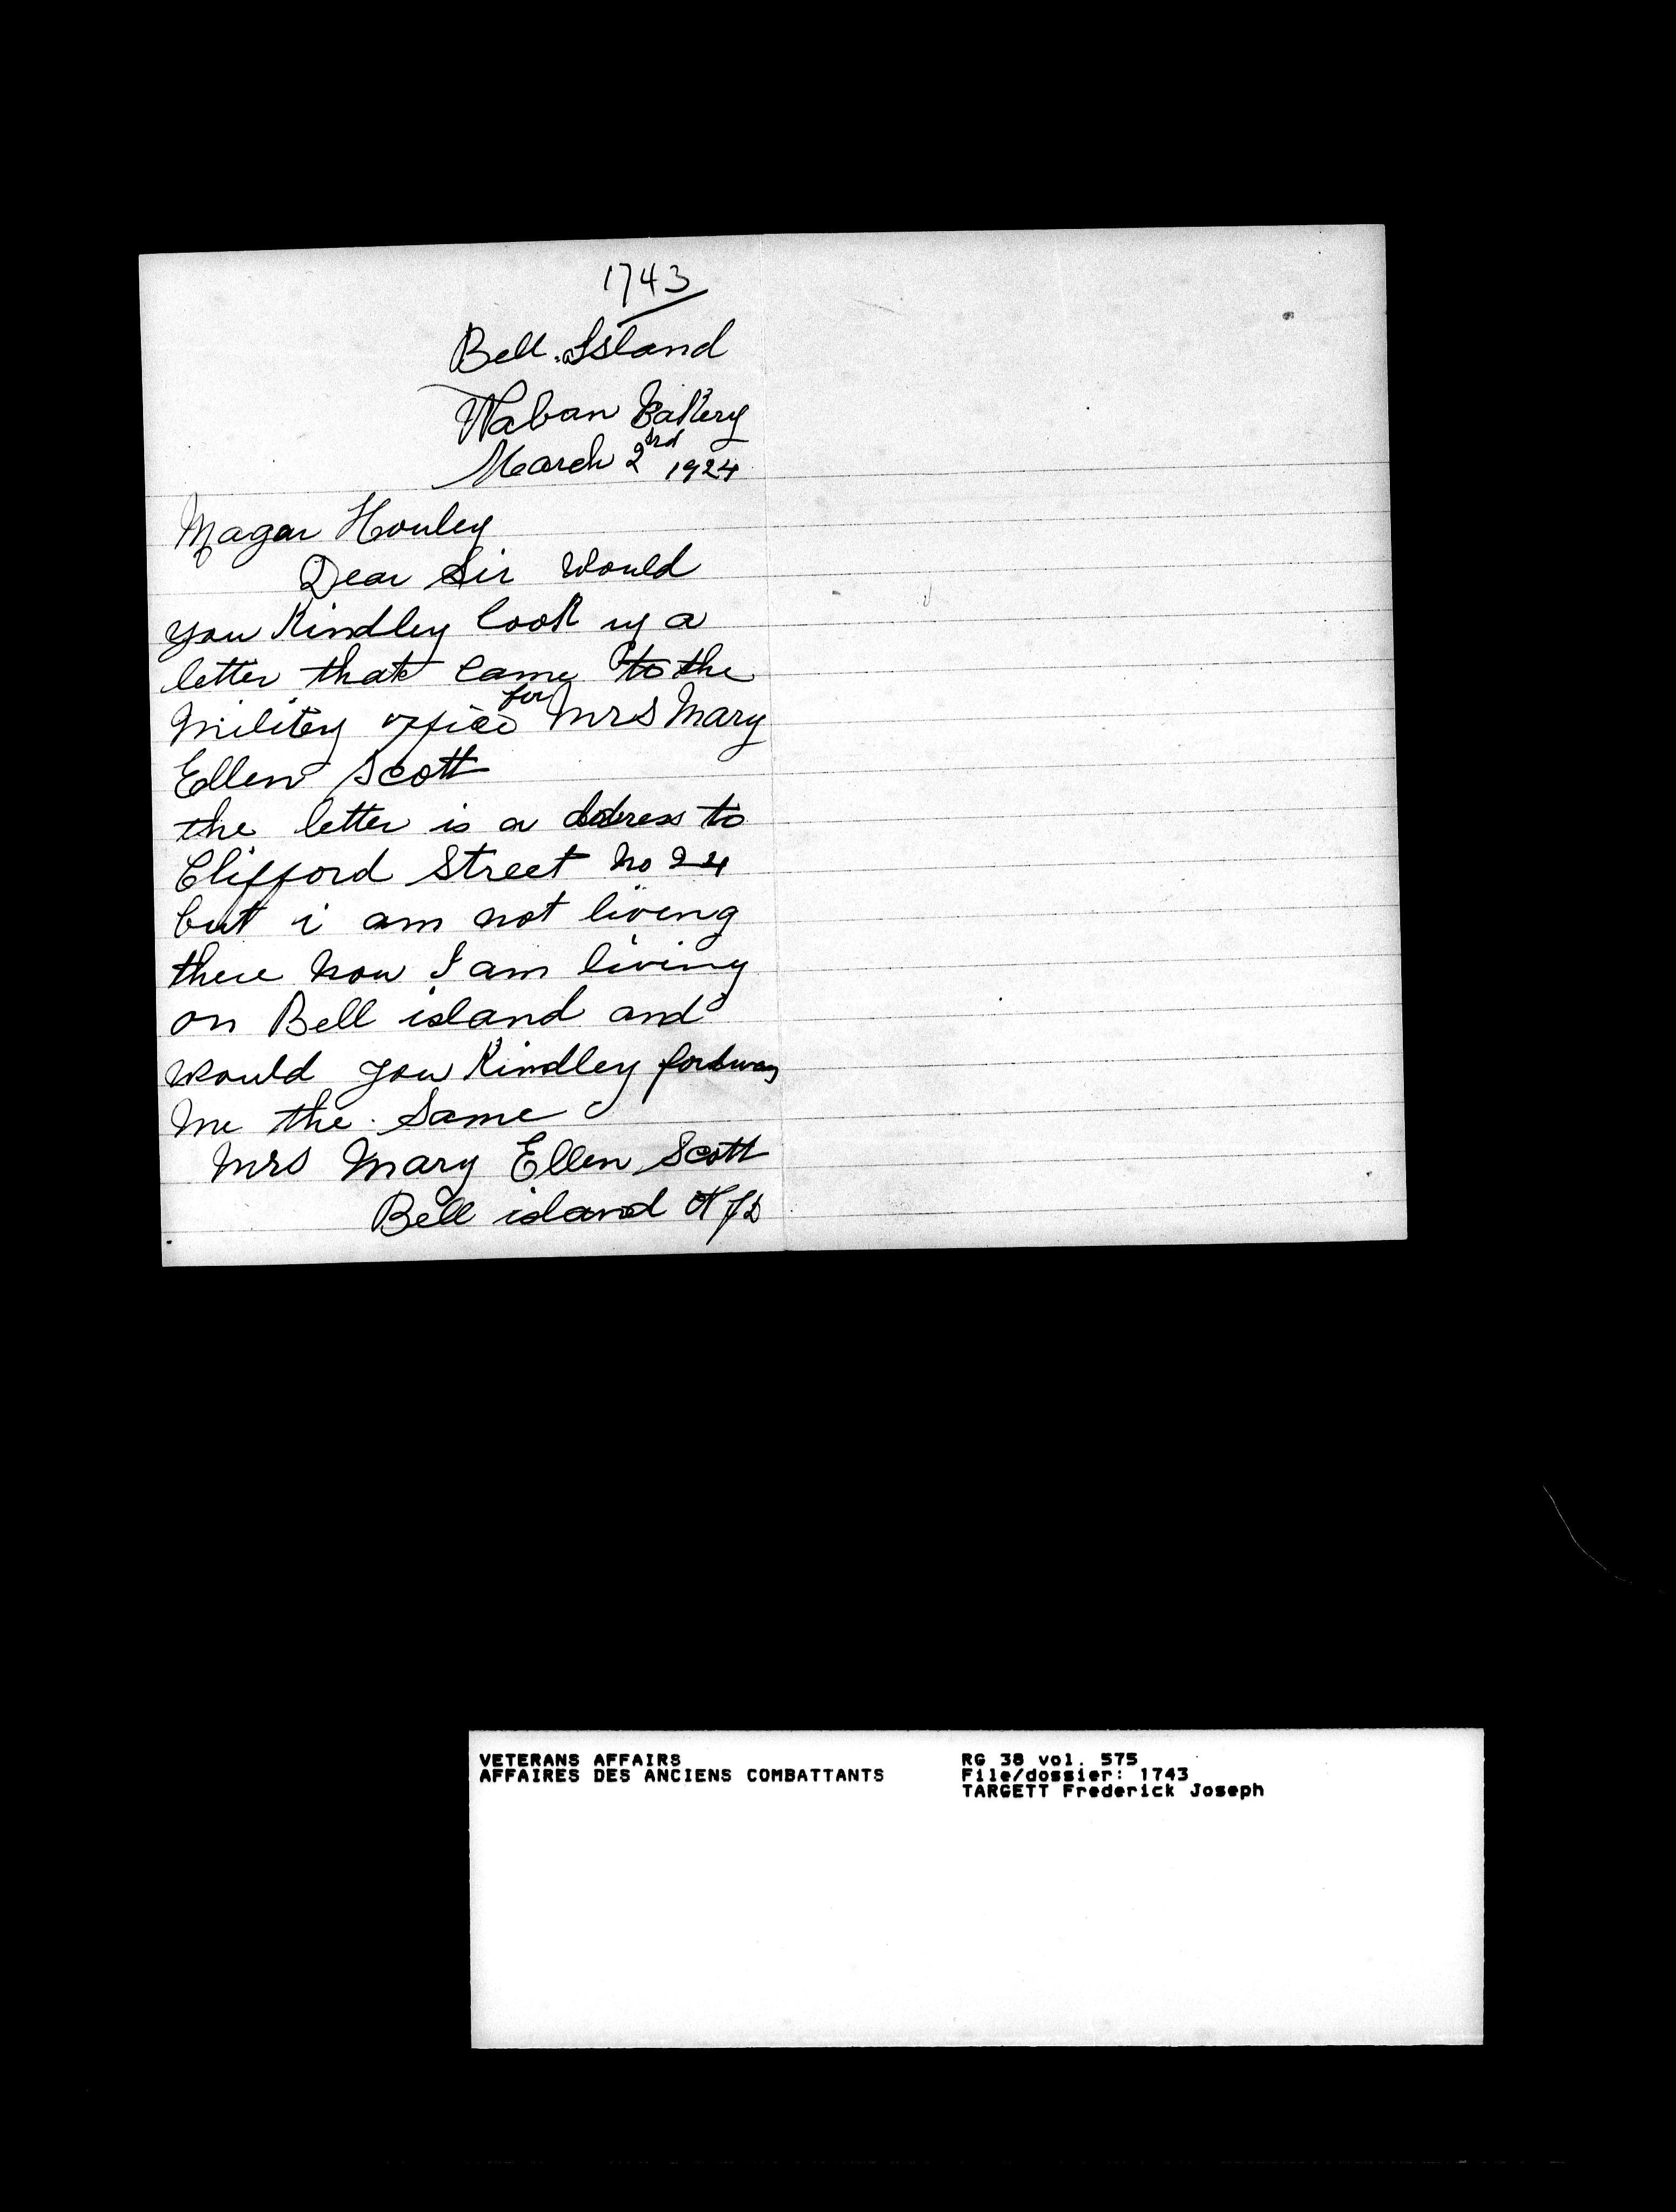 1743
Bell Island
Waban Bakery
March 2 rd 1924
Magar Houley
Dear Sir Would
you Kindley look up a
letter that came to the
Militey office for Mrs Mary
Ellen Scott
the letter is a ddress to
Clifford Street No 24
but i am not living
there now I am living
on Bell island and
would you Kindley
me the Same
Mrs Mary Ellen Scott
Bell island Nfd
VETERANS AFFAIRS
AFFAIRES DES ANCIENS COMBATTANTS
RG 38 vol. 575
File/dossier: 1743
TARGETT Frederick Joseph